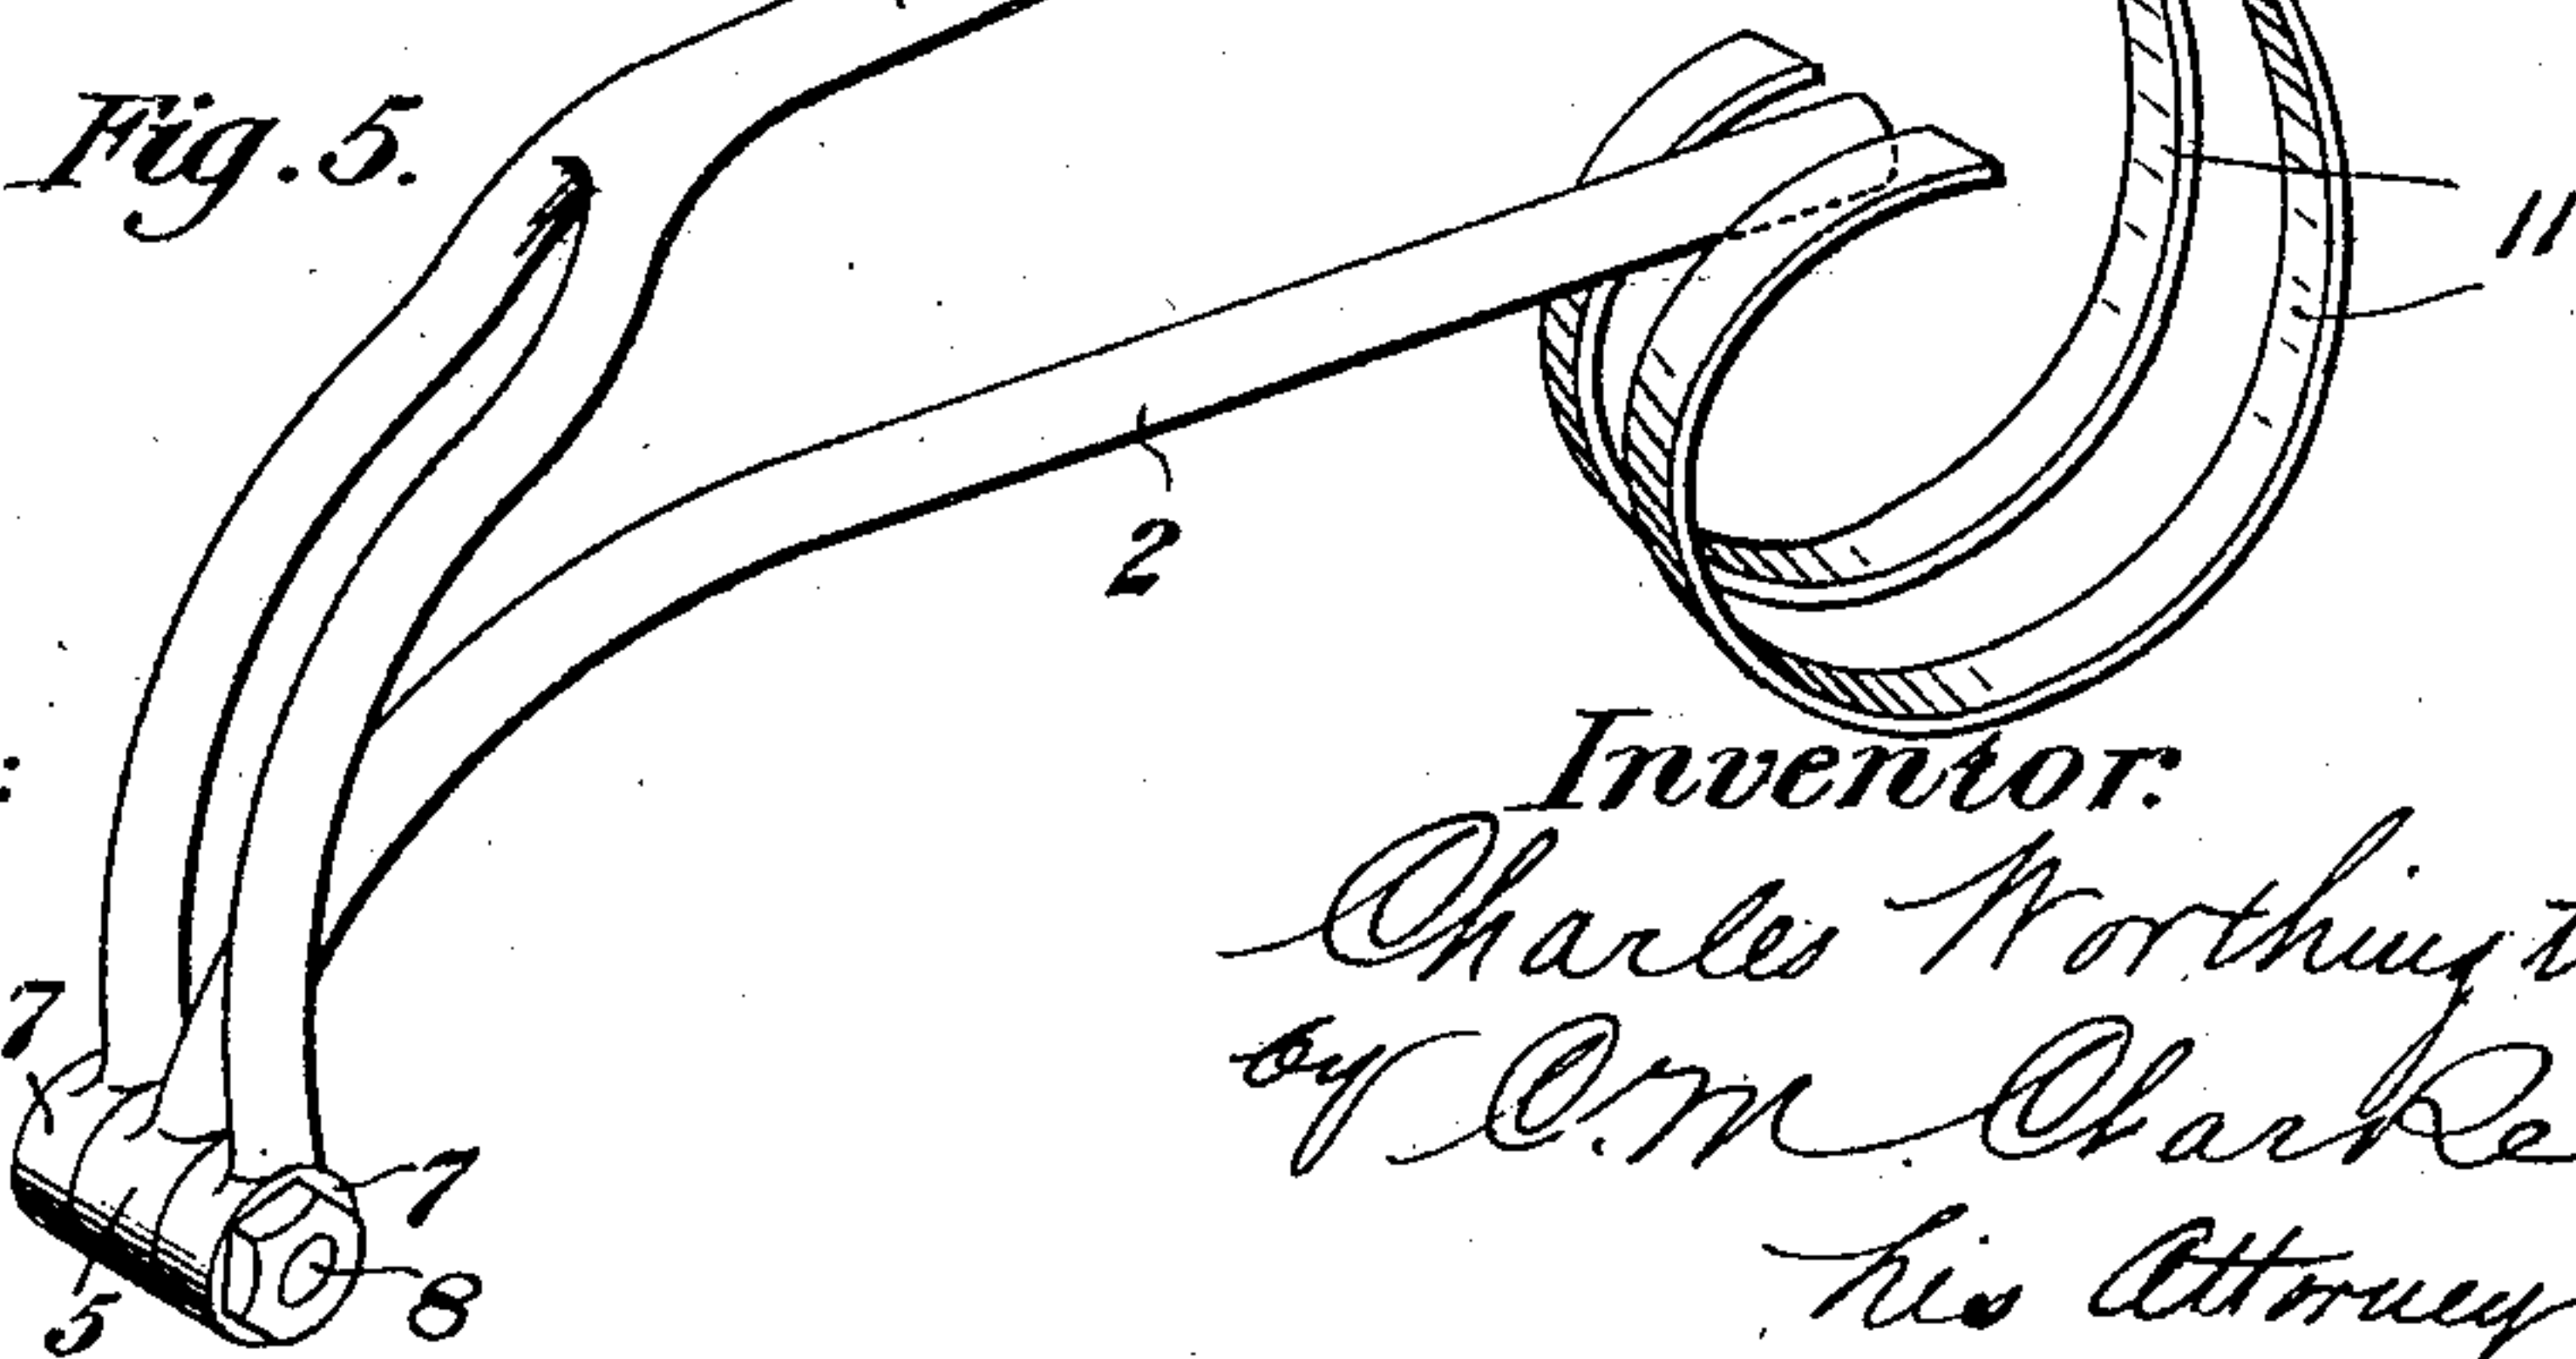 Fig. 5.
11
2
Inventor:
Charles Worthingt
7
by C. M. Clarke
7
his Attorney
5
8